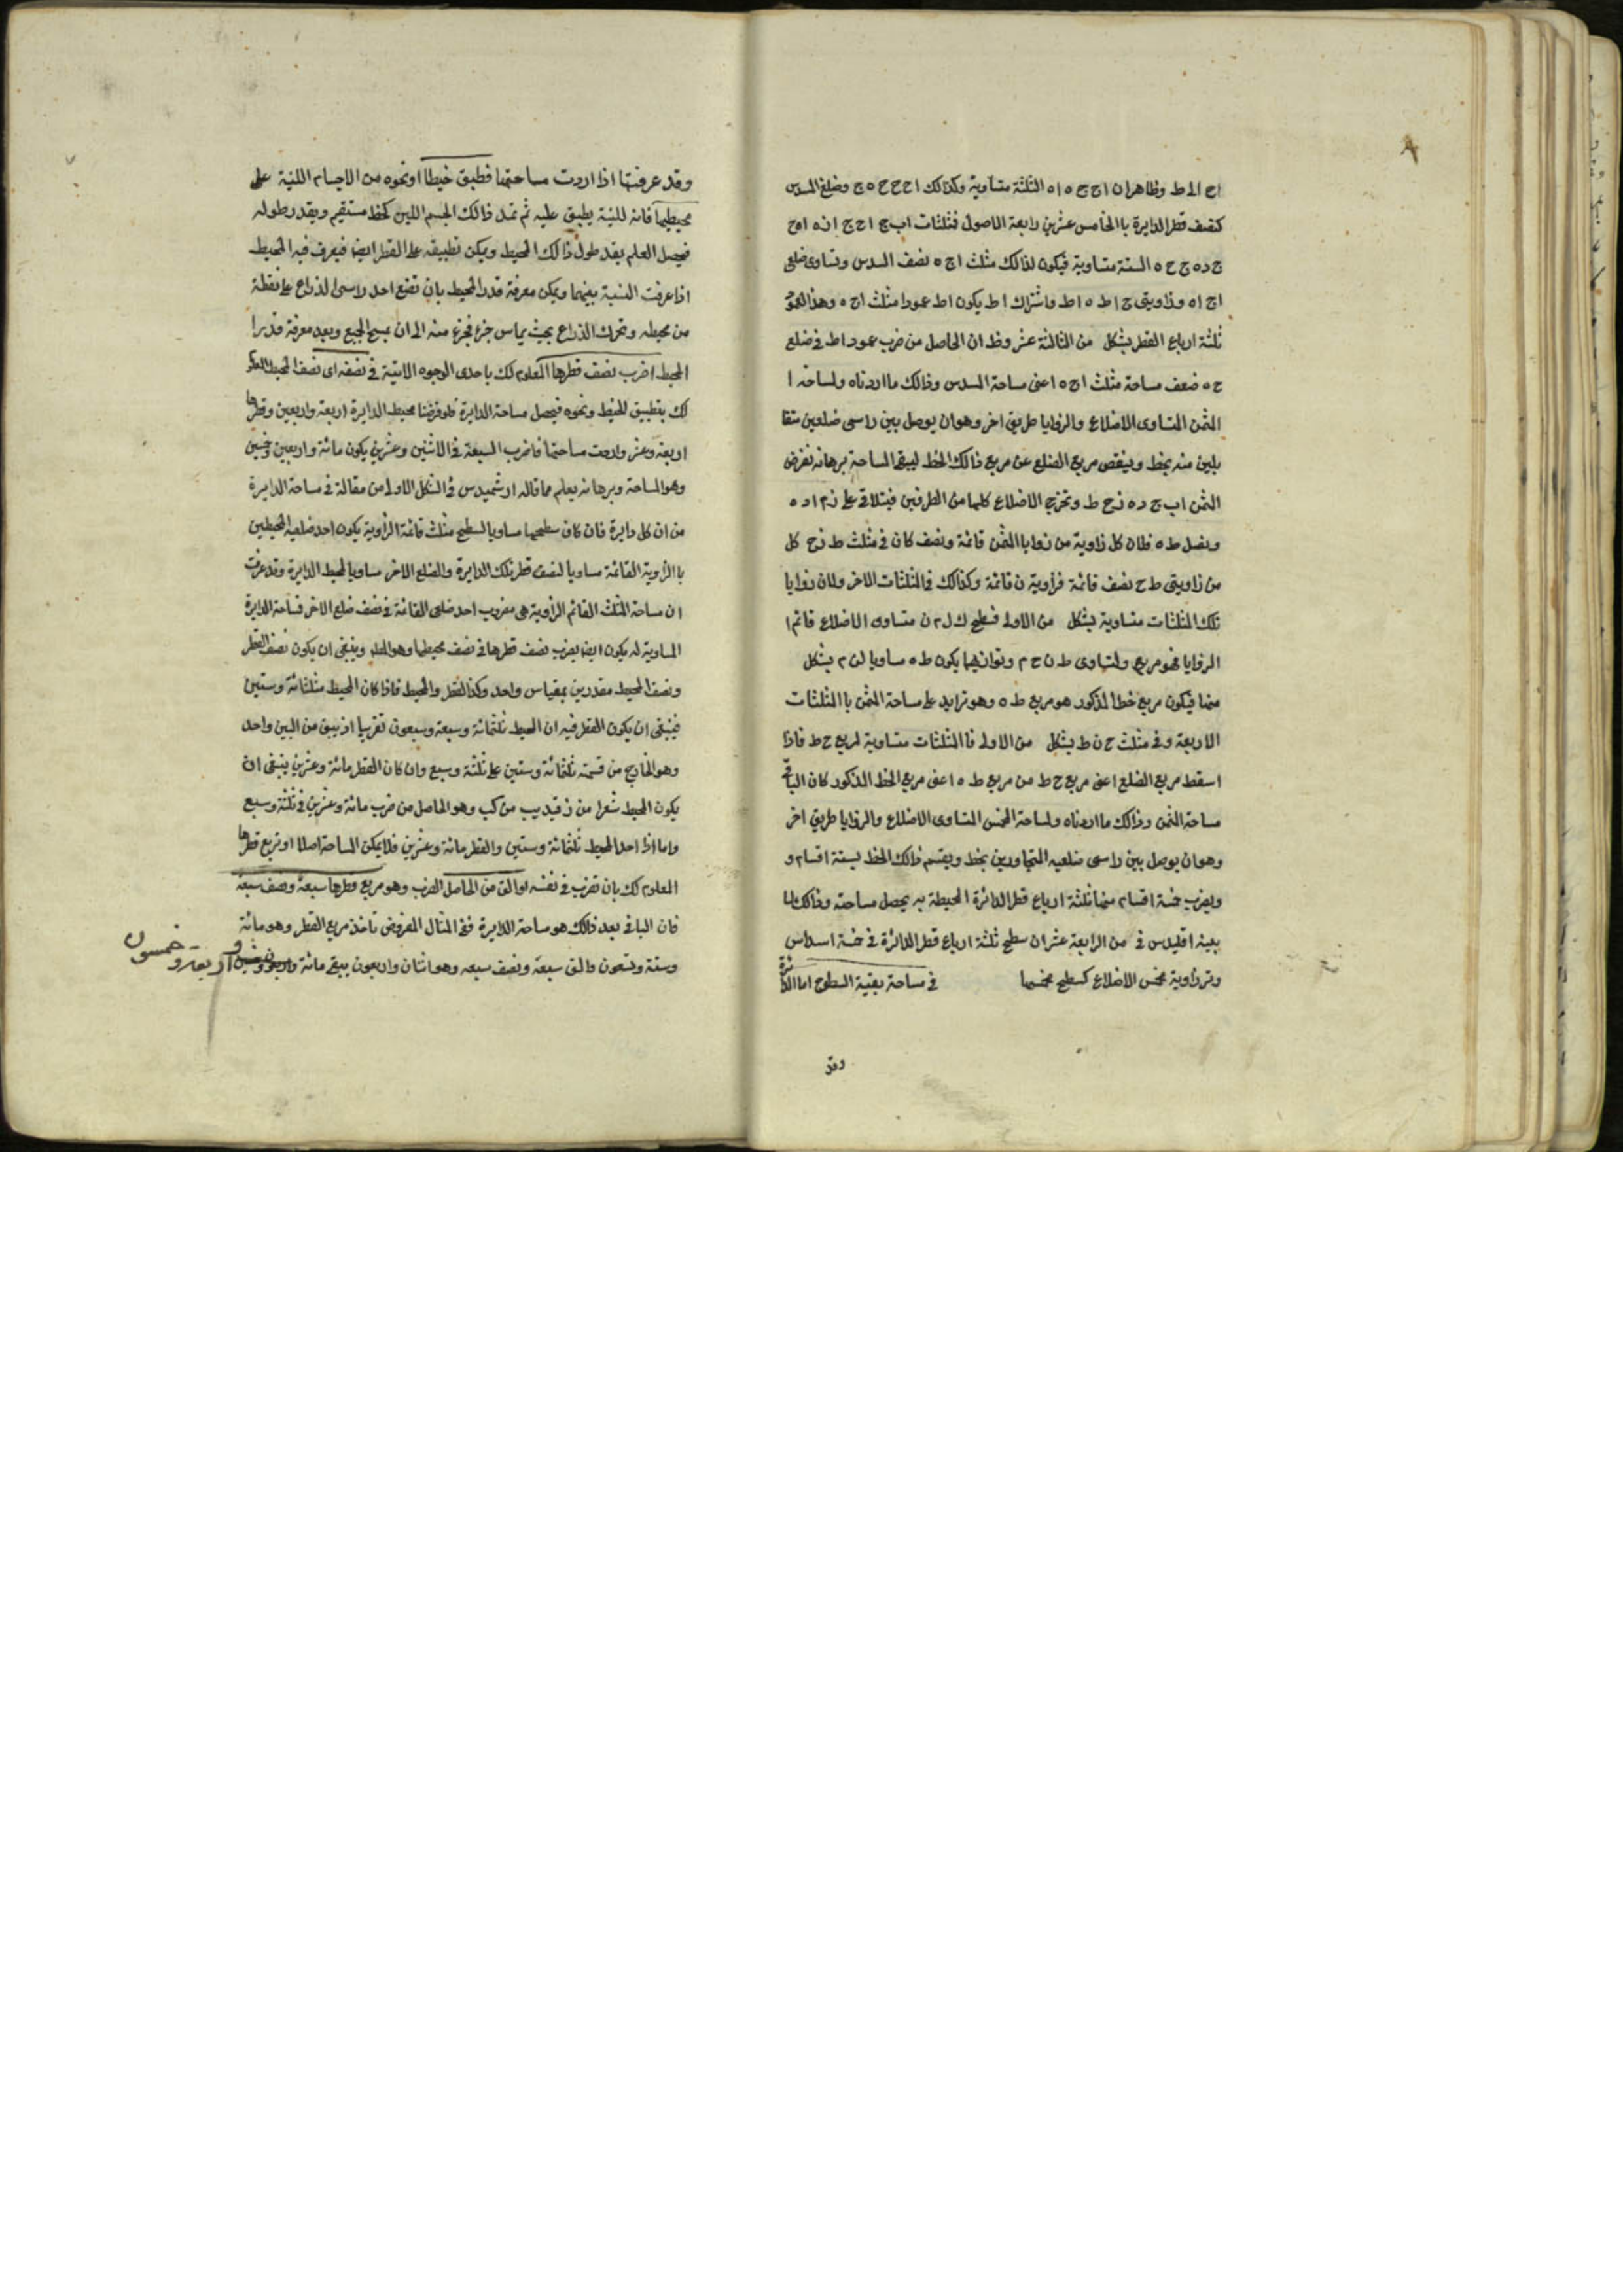 اح الى ط وظاهران ا ج ج ه ا ه الثلثة متساوية وكذالك ا ح ح ج ه ج وضلع المسدس
كنصف قطر الدايرة با الخامس عشرين رابعة الاصول فثلثات اب ج ا ج ج ا ز ه ا ه ح
ج د ه ج ح ه الستة متساوية فيكون لذالك مثلث ا ج ه نصف المسدس وتساوى ضلعى
ا ج ا ه وزاويتى ج ا ط ه ا ط واشتراك ا ط يكون ا ط عمودا مثلث ا ج ه وهذا العمود
ثلثة ارباع القطر بشكل من الثالثة عشر وظ ان الحاصل من ضرب عمود ا ط فى ضلع
ح ه ضعف مساحة مثلث ا ج ه اعنى مساحة المسدس وذالك ما اردناه ولمساحة ا
المثمن المتساوى الاضلاع والزوايا طريق اخر وهو ان يوصل بين راسى ضلعين متقا
بلين منه بخط وينقص مربع الضلع عن مربع ذالك الخط ليبقى المساحة برهانه نفرض
المثمن ا ب ج د ه ز ح ط ونخرج الاضلاع كلها من الطرفين فيتلاقى على ن م ا و ه
ونصل ط ه فلان كل زاوية من زوايا المثمن قائمة ونصف كان فى مثلث ط ن ح كل
من زاويتى ط ح نصف قائمة فزاوية ن قائمة وكذالك فى المثلثات الاخر ولان زوايا
تلك المثلثات متساوية بشكل من الاولى فسطح ك ل م ن متساوى الاضلاع قائم ا
الزوايا فهو مربع ولتساوى ط ن ح م وتوازيهما يكون ط ه مساويا لن م بشكل
منها فيكون مربع خط المذكور هو مربع ط ه وهو تزايد على مساحة المثمن با المثلثات
الاربعة وفى مثلث ح ن ط بشكل من الاولى فا المثلثات متساوية لمربع ح ط فاذا
اسقط مربع الضلع اعنى مربع ح ط من مربع ط ه اعنى مربع الخط المذكور كان الباقى
مساحة المثمن وذالك ما اردناه ولمساحة المخمس المتساوى الاضلاع والزوايا طريق اخر
وهو ان يوصل بين راسى ضلعيه المتجاورين بخط ويقسم ذالك الخط بستة اقسام و
ويضرب خمسة اقسام منها ثلثة ارباع قطر الدائرة المحيطة به يحصل مساحته وذالك لما
بينه اقليدس فى من الرابعة عشر ان سطح ثلثة ارباع قطر الدائرة فى خمسة اسداس
وتر زاوية مخمس الاضلاع كسطح مخمسها فى مساحة بقية السطوح اما الدائرة
وقد
وقد عرفتها اذا اردت مساحتها فطبق خيطا او نحوه من الاجسام اللنية على
محيطها فانه للنية يطبق عليه ثم تمد ذالك الجسم اللين كخط مستقيم ويقدر طوله
فيحصل العلم بقدر طول ذالك المحيط ويمكن تطبيقه على القطر ايضا فيعرف فيه المحيط
اذا عرفت النسبة بينهما ويمكن معرفة قدر المحيط بان تضع احد راسى الذراع على نقطة
من محيطه وتحرك الذراع بحيث يماس جزء فجزء منه الى ان يمسح الجميع وبعد معرفة قدر ا
المحيط اضرب نصف قطرها المعلوم لك باحدى الوجوه الاتية فى نصفه اى نصف المحيط المعلوم
لك بتطبيق الخيط ونحوه فيحصل مساحة الدايرة فلو فرضنا محيط الدايرة اربعة واربعين وقطرها
اربعة وعشر واردت مساحتها فاضرب السبعة فى الاثنين وعشرين يكون مائة واربعين وخمسين
وهو المساحة وبرهانه يعلم مما قاله ارشميدس فى الشكل الاول من مقالة فى مساحة الدايرة
من ان كل دايرة فان كان سطحها مساويا لسطح مثلث قائمة الزاوية يكون احد ضلعيه المحيطين
با الزاوية القائمة مساويا لنصف قطر تلك الدايرة والضلع الاخر مساويا لمحيط الدايرة وقد عرفت
ان مساحة المثلث القائم الزاوية هى مضروب احد ضلعى القائمة فى نصف ضلع الاخر فساحة الدايرة
المساوية له يكون ايضا بضرب نصف قطرها فى نصف محيطها وهو المط وينبغى ان يكون نصف القطر
ونصف المحيط مقدرين بمقياس واحد وكذا القطر والمحيط فاذا كان المحيط مثلثائة وستين
فينبغى ان يكون القطر فيه ان المحيط ثلثمائة وسبعة وسبعون تقريبا اذ يبق من البين واحد
وهو الخارج من قسمة ثلثمائة وستين على ثلثة وسبع وان كان القطر مائة وعشرين ينبغى ان
يكون المحيط شعرا من ز قيد يب من كب وهو الحاصل من ضرب مائة وعشرين فى ثلثة وسبع
واما اذا احد المحيط ثلثمائة وستين والقطر مائة وعشرين فلا يمكن المساحة اصلا او تربع قطرها
المعلوم لك بان تضرب فى نفسه او الق من الحاصل الضرب وهو مربع قطرها سبعة ونصف سبعه
فان الباقى بعد ذلك هو مساحة الدايرة ففى المثال المفروض تأخذ مربع القطر وهو مائة
وستة وتسعون والق سبعة ونصف سبعه وهو اثنان واربعون يبقى مائة واربعون وخمسين
واربعة وخمسون